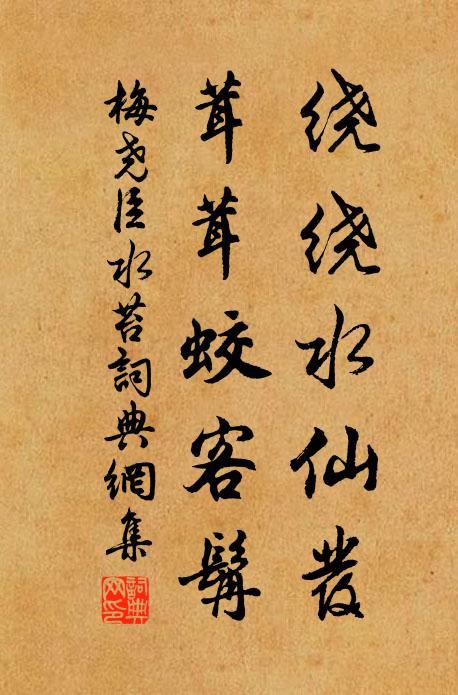 绕绕水仙發
茸茸蛟客髯
梅尧臣水苔詞典網集
詞典网印